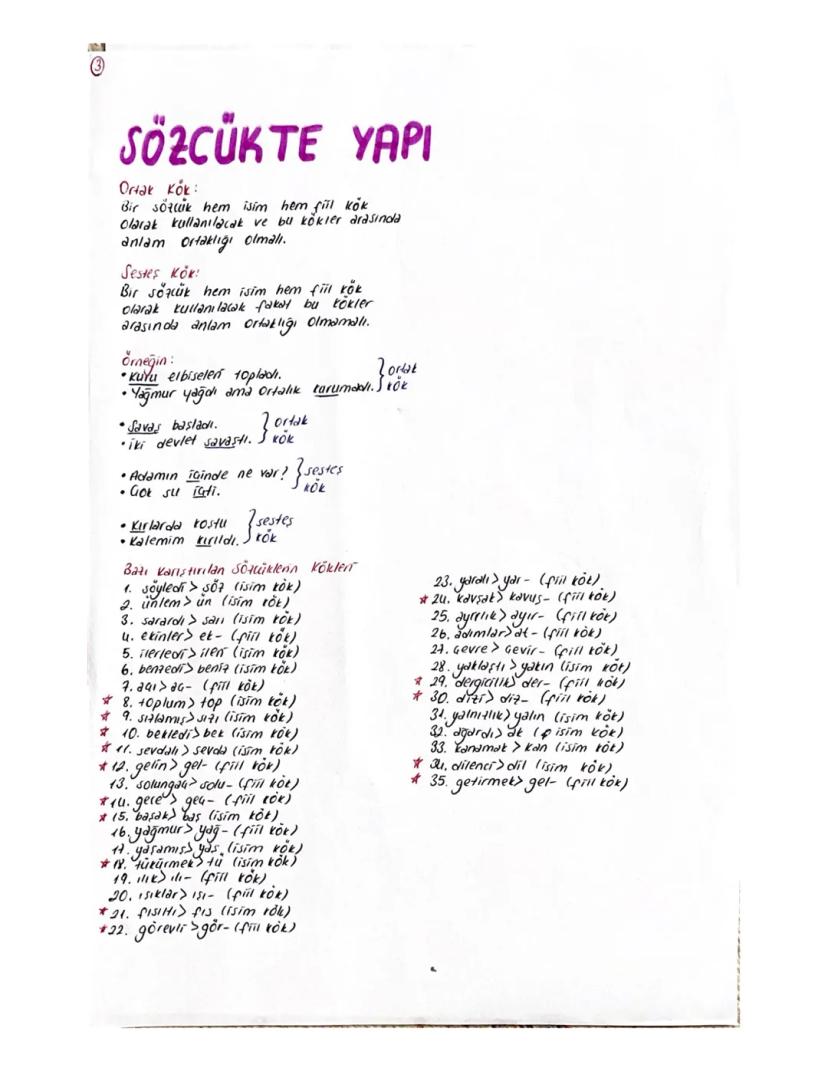 3
SÖZCÜKTE YAPI
Ortak Kök:
Bir sözcük hem isim hem fiil kök
olarak kullanılacak ve bu kökler arasında
anlam ortaklığı olmalı.
Sesteş Kök:
Bir sözcük hem isim hem fiil kök
olarak kullanılacak fakat bu kökler
arasında anlam ortaklığı olmamalı.
Örneğin:
• Kuru elbiseleri topladı.
• Yağmur yağdı ama ortalık kurumadı. } ortak kök
• Savaş başladı.
• İki devlet savaştı. } ortak kök
• Adamın içinde ne var?
• Çok su içti. } sesteş kök
• Kırlarda koştu
• Kalemim kırıldı. } sesteş kök
Bazı Karıştırılan Sözcüklerin Kökleri
1. söyledi > söz (isim kök)
2. ünlem > ün (isim kök)
3. sarardı > sarı (isim kök)
4. ekinler > ek- (fiil kök)
5. ilerledi > ileri (isim kök)
6. benzedi > beniz (isim kök)
7. acı > ac- (fiil kök)
* 8. toplum > top (isim kök)
* 9. sızlamış > sızı (isim kök)
* 10. bekledi > bek (isim kök)
* 11. sevdalı > sevda (isim kök)
* 12. gelin > gel- (fiil kök)
13. solungaç > solu- (fiil kök)
* 14. gece > geç- (fiil kök)
* 15. başak > baş (isim kök)
16. yağmur > yağ- (fiil kök)
17. yaşamış > yaş (isim kök)
* 18. tükürmek > tü (isim kök)
19. ılık > ılı- (fiil kök)
20. ışıklar > ışı- (fiil kök)
* 21. fısıltı > fıs (isim kök)
* 22. görevli > gör- (fiil kök)
23. yaralı > yar- (fiil kök)
* 24. kavşak > kavuş- (fiil kök)
25. ayrılık > ayır- (fiil kök)
26. adımlar > at- (fiil kök)
27. çevre > çevir- (fiil kök)
28. yaklaştı > yakın (isim kök)
* 29. dergicilik > der- (fiil kök)
* 30. dizi > diz- (fiil kök)
31. yalnızlık > yalın (isim kök)
32. ağardı > ak (isim kök)
33. kanamak > kan (isim kök)
* 34. dilenci > dil (isim kök)
* 35. getirmek > gel- (fiil kök)